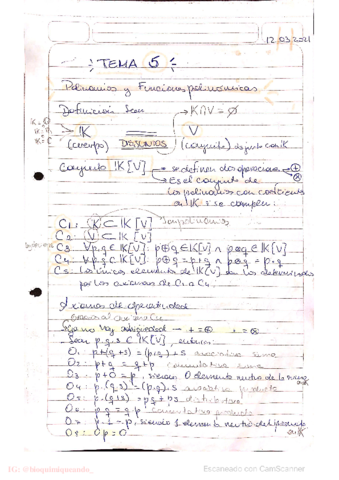 12.03.2021
TEMA 5
Polinomios y Funciones polinómicas
Definición: Sean
K∩V = ∅
K
V
(cuerpo) DISJUNTOS (conjunto) disjunto con K
Conjunto K[V] → se definen dos operaciones ⊕ ⊗
→ Es el conjunto de
los polinomios con coeficientes
en K si se cumplen:
C1: K ⊂ K[V]
C2: V ⊂ K[V]
C3: ∀p,q ∈ K[V]: p⊕q ∈ K[V] ∧ p⊗q ∈ K[V]
C4: ∀p,q ∈ K: p⊕q = p+q ∧ p⊗q = p.q
C5: Los únicos elementos de K[V] son los determinados
por los axiomas de C1 a C4.
Axiomas de operatividad
Si no hay ambigüedad → + = ⊕ . = ⊗
Sean p,q,s ∈ K[V], entonces:
O1: p+(q+s) = (p+q)+s asociativa suma
O2: p+q = q+p conmutativa suma
O3: p+0 = p, siendo 0 elemento neutro de la suma
en K
O4: p.(q.s) = (p.q).s asociativa producto
O5: distributiva
O6: p.q = q.p conmutativa producto
O7: p.1 = p, siendo 1 elemento neutro del producto
en K
O8: 0p = 0
IG: @bioquimiqueando_
Escaneado con CamScanner